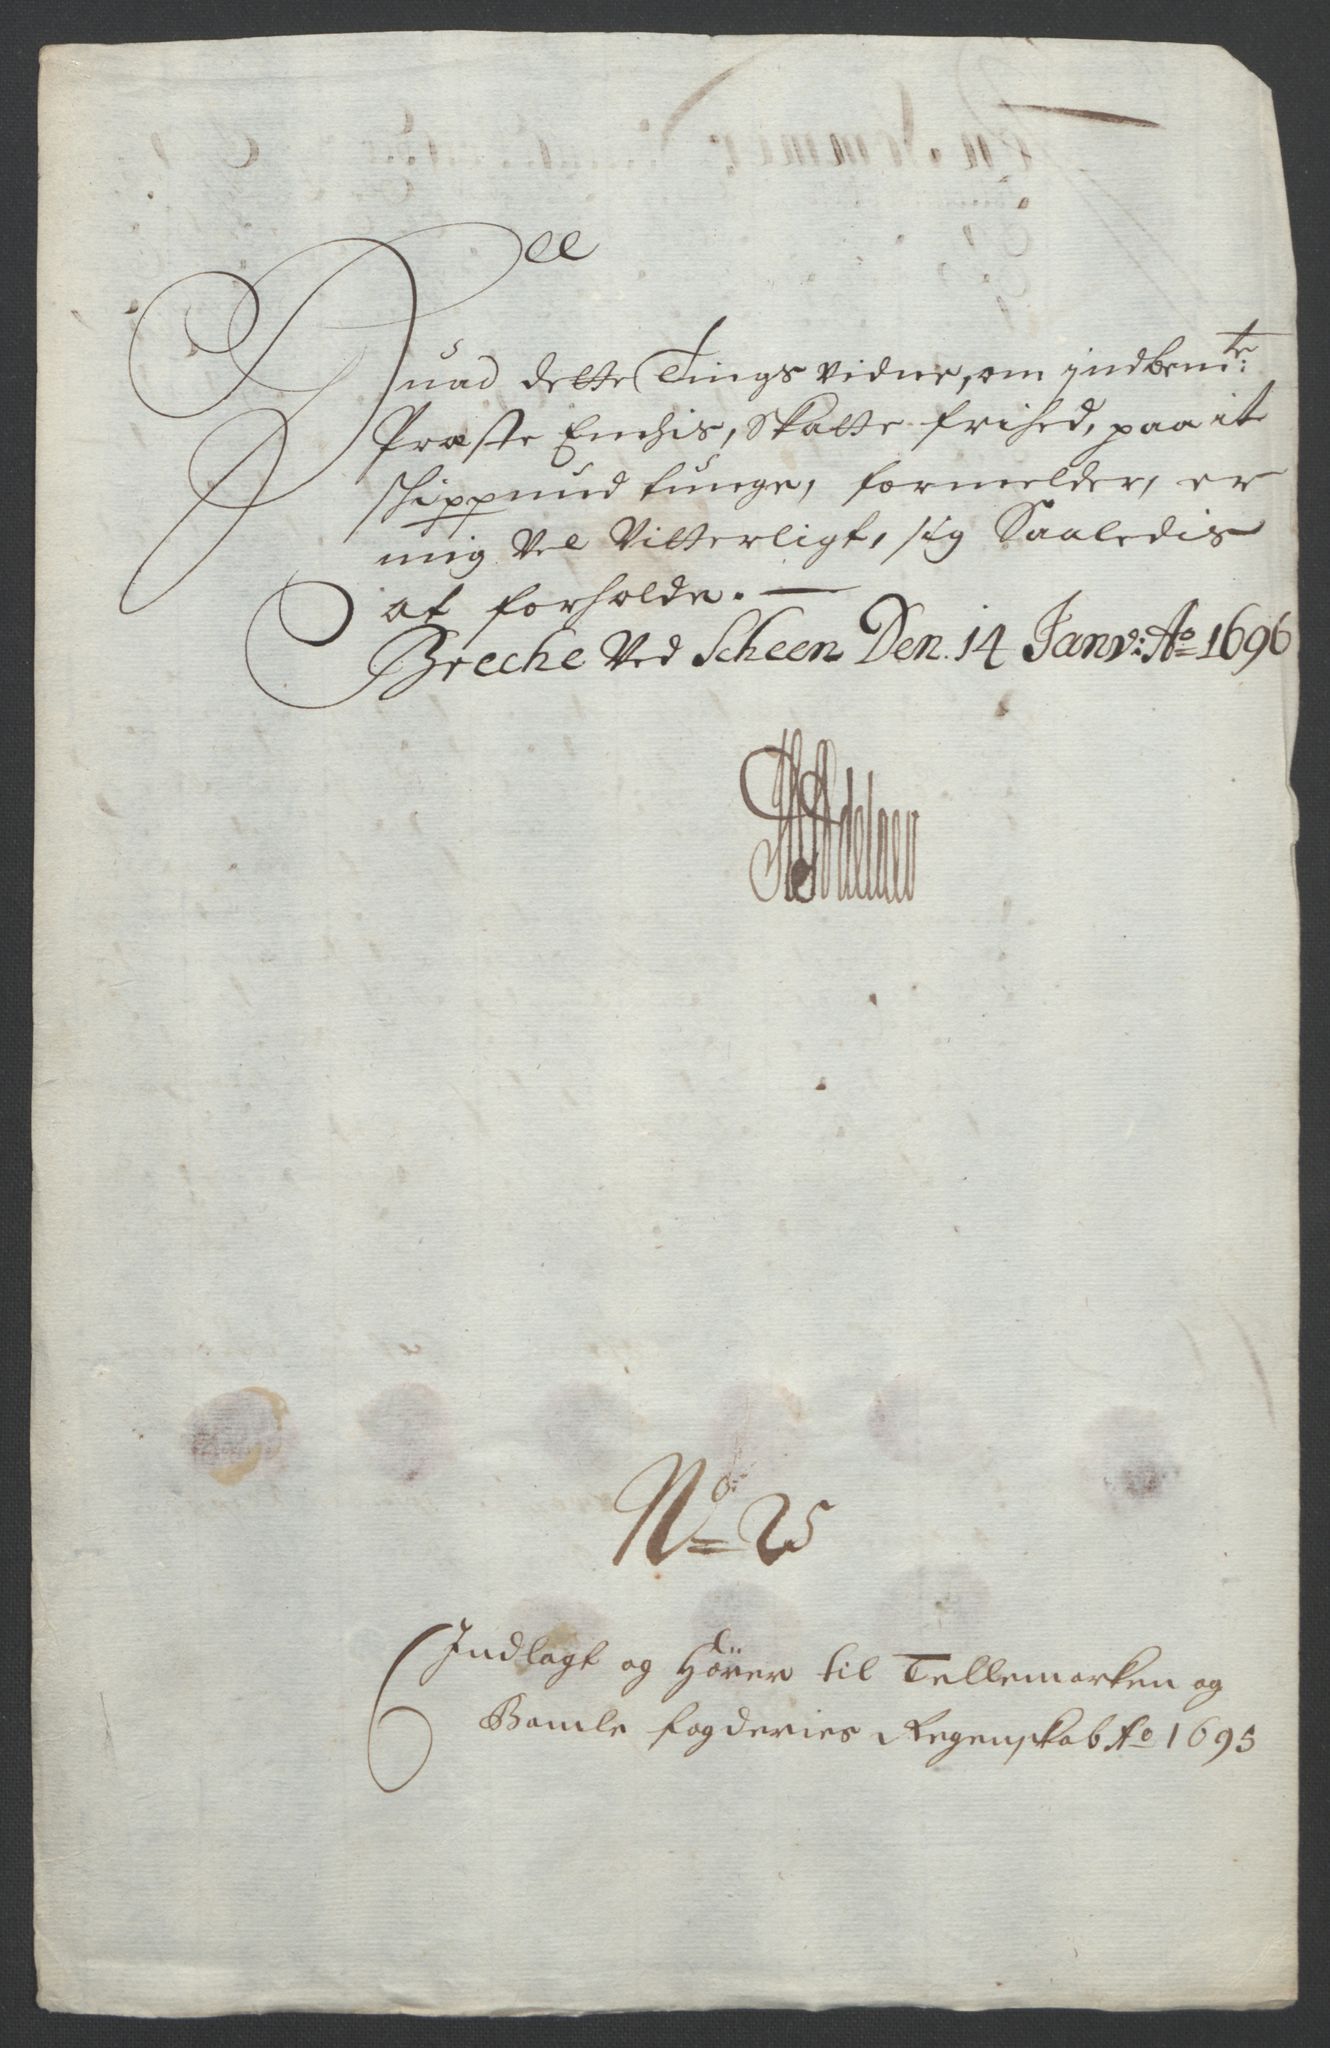 Huad dette Tings vidne, om indbem:te
Præste Enchis, Skatte frihed, paa it
schippund tunge, formelder, er
mig Vel Vitterligt, sig Saaledis
at forholde.
Breche Ved Scheen Den. 14 Janv: Ao 1696
Adelaer
No 25
Indlagt og Hörer til Tellemarken og
Bamle fogderies Regenskab Ao 1695